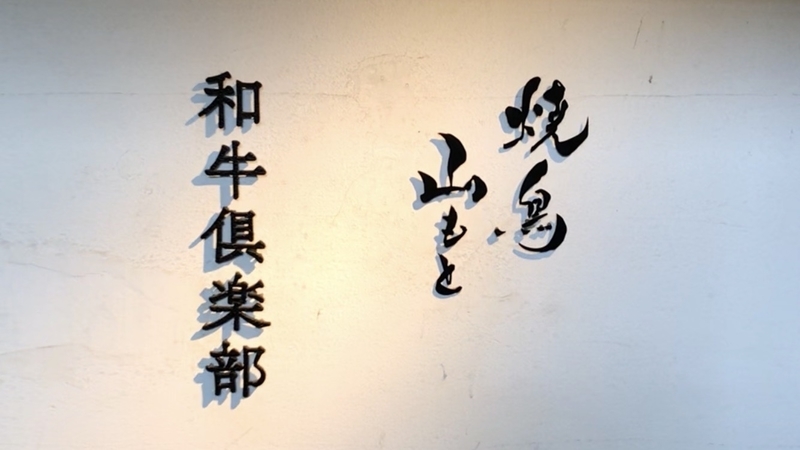 焼鳥
山もと
和牛倶楽部